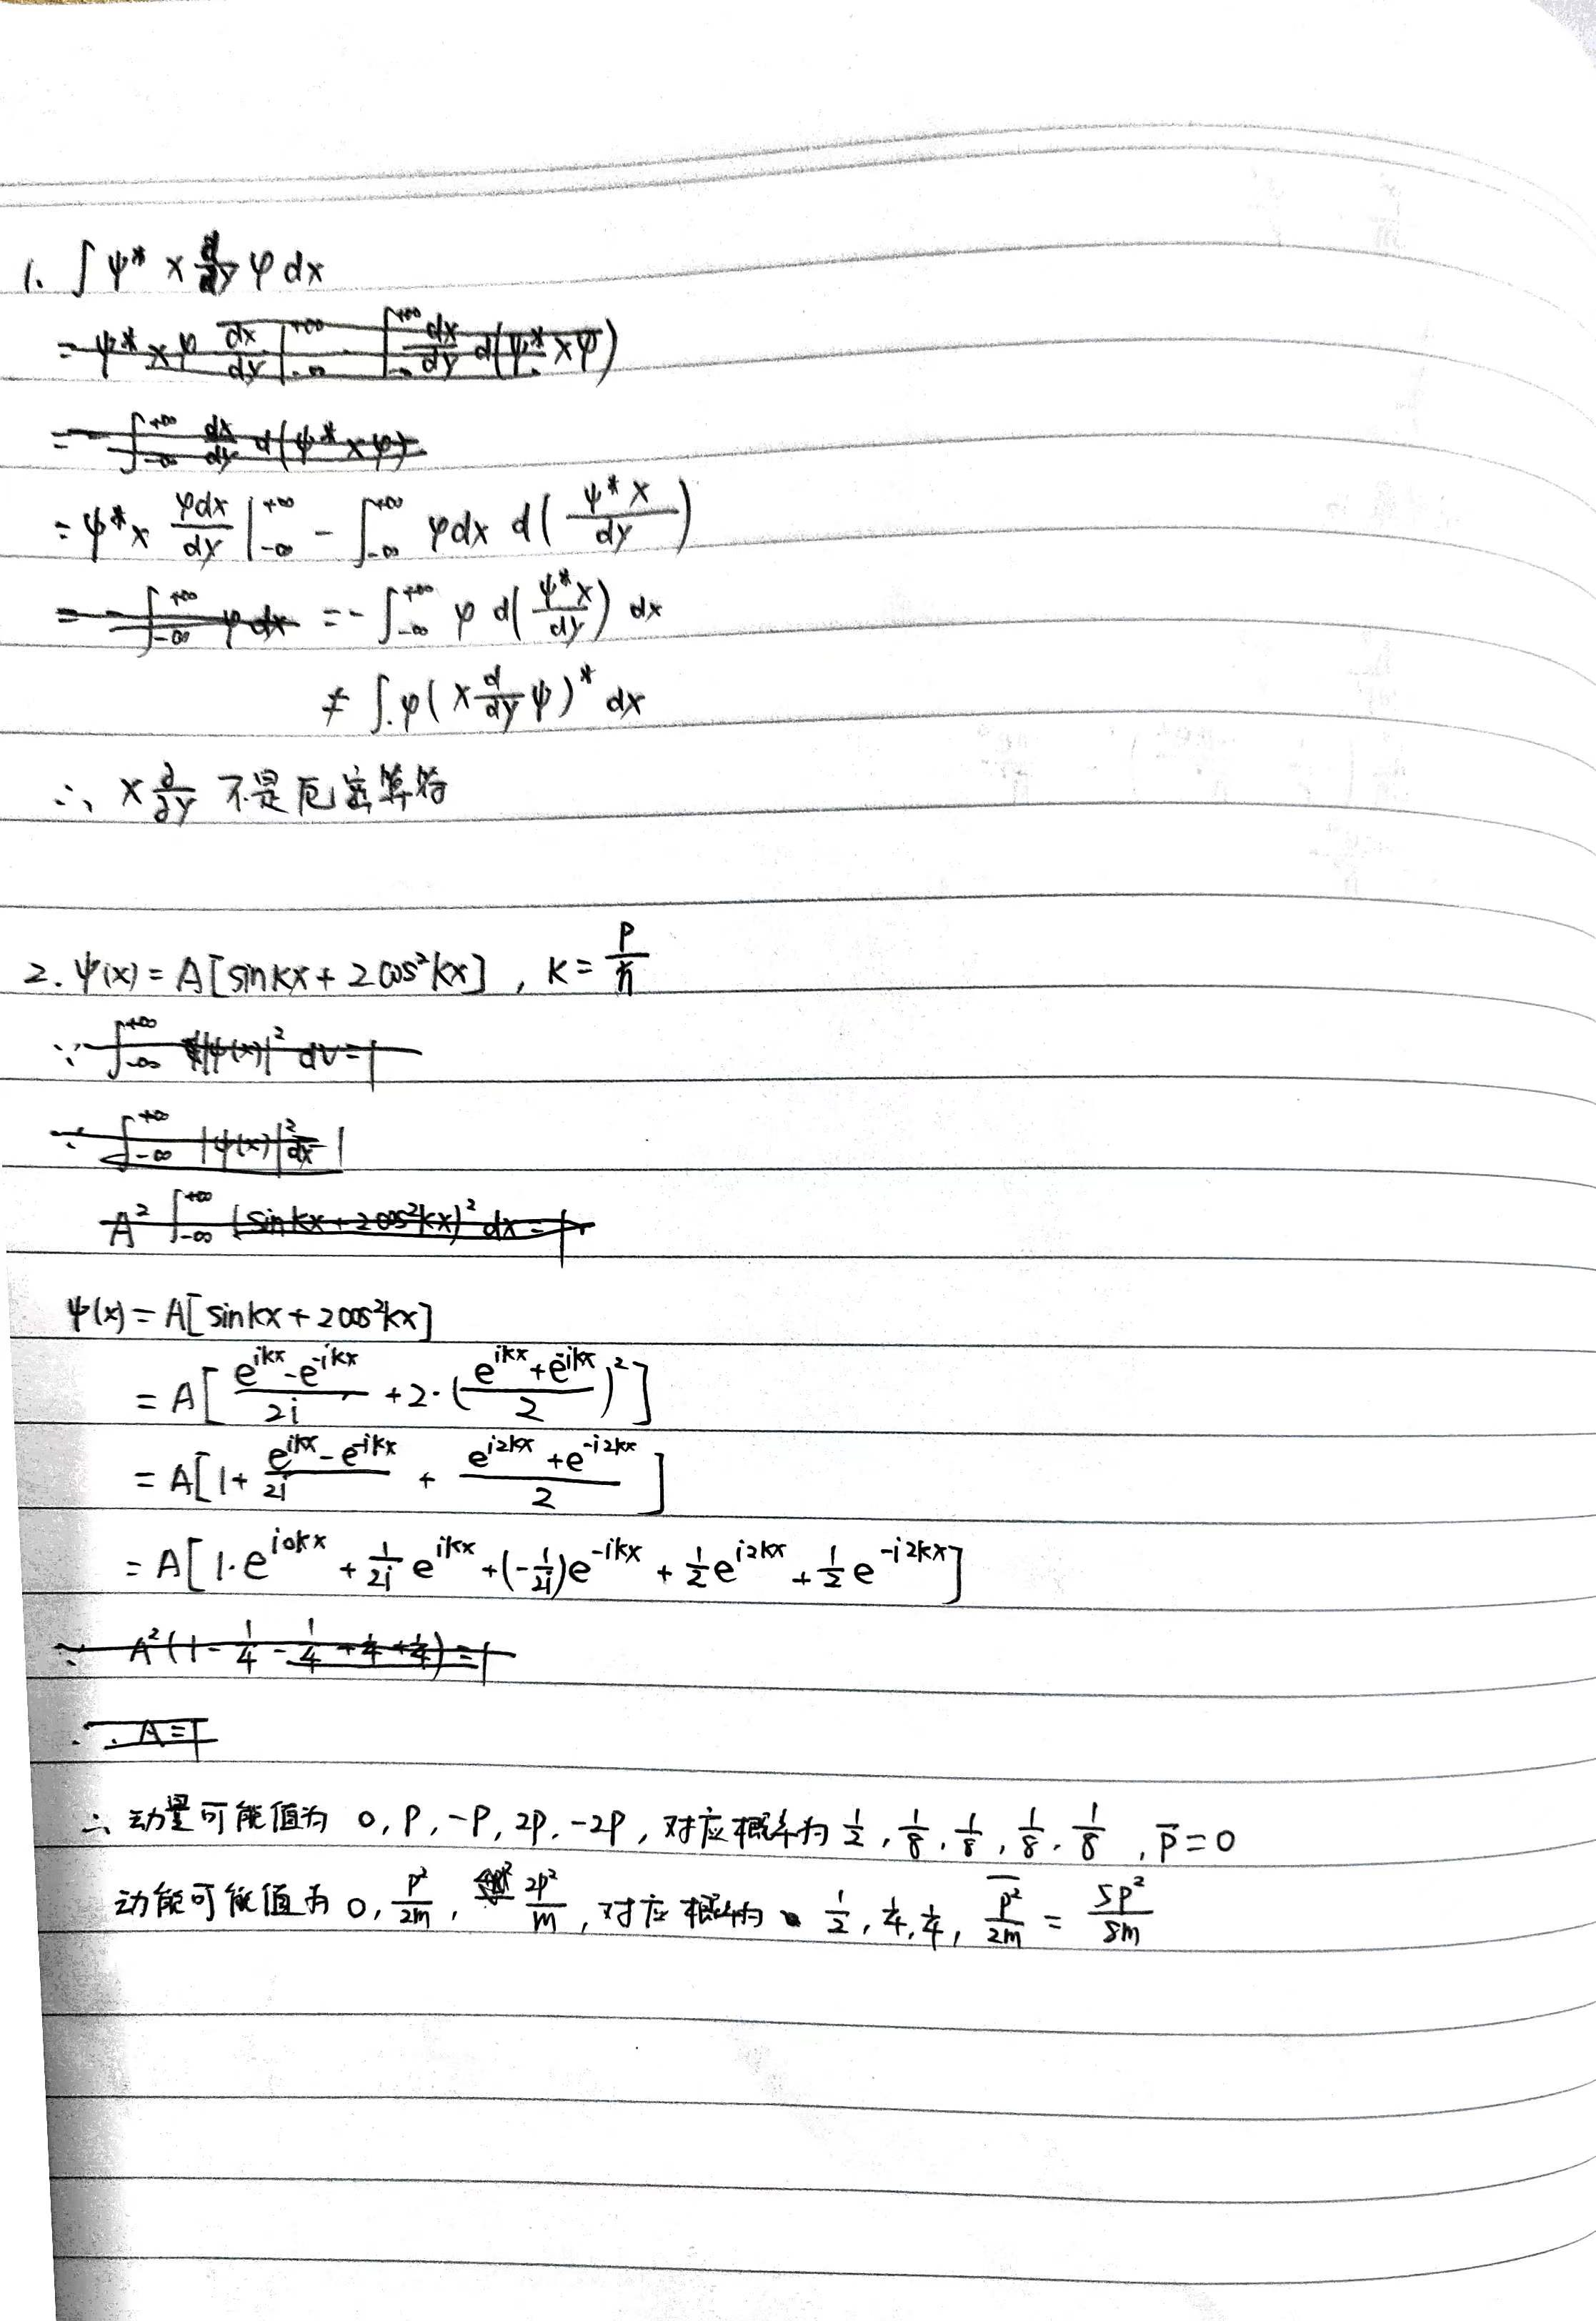 1. ∫ψ* x d/dy φ dx
= ψ* x φ dx/dy |₋∞^+∞ - ∫₋∞^+∞ dx/dy d(ψ* x φ)
= - ∫₋∞^+∞ dx/dy d(ψ* x φ)
= ψ* x φdx/dy |₋∞^+∞ - ∫₋∞^+∞ φdx d(ψ* x/dy)
= - ∫₋∞^+∞ φ dx = - ∫₋∞^+∞ φ d(ψ* x/dy) dx
≠ ∫ φ(x d/dy ψ)* dx
∴ x ∂/∂y 不是厄密算符
2. ψ(x) = A[sinkx + 2cos²kx] , k = p/ħ
∵ ∫₋∞^+∞ |ψ(x)|² dv = 1
∵ ∫₋∞^+∞ |ψ(x)|² dx 1
A² ∫₋∞^+∞ (sinkx + 2cos²kx)² dx = 1
ψ(x) = A[sinkx + 2cos²kx]
= A[(e^ikx - e^-ikx)/2i + 2·((e^ikx + e^-ikx)/2)²]
= A[1 + (e^ikx - e^-ikx)/2i + (e^i2kx + e^-i2kx)/2]
= A[1·e^i0kx + 1/2i e^ikx + (-1/2i)e^-ikx + 1/2 e^i2kx + 1/2 e^-i2kx]
∵ A²(1 - 1/4 - 1/4 + 1/4 + 1/4) = 1
∴ A = 1
∴ 动量可能值为 0, P, -P, 2P, -2P, 对应概率为 1/2, 1/8, 1/8, 1/8, 1/8, p̄ = 0
动能可能值为 0, p²/2m, 2p²/m, 对应概率为 1/2, 1/4, 1/4, p̄²/2m = 5p²/8m